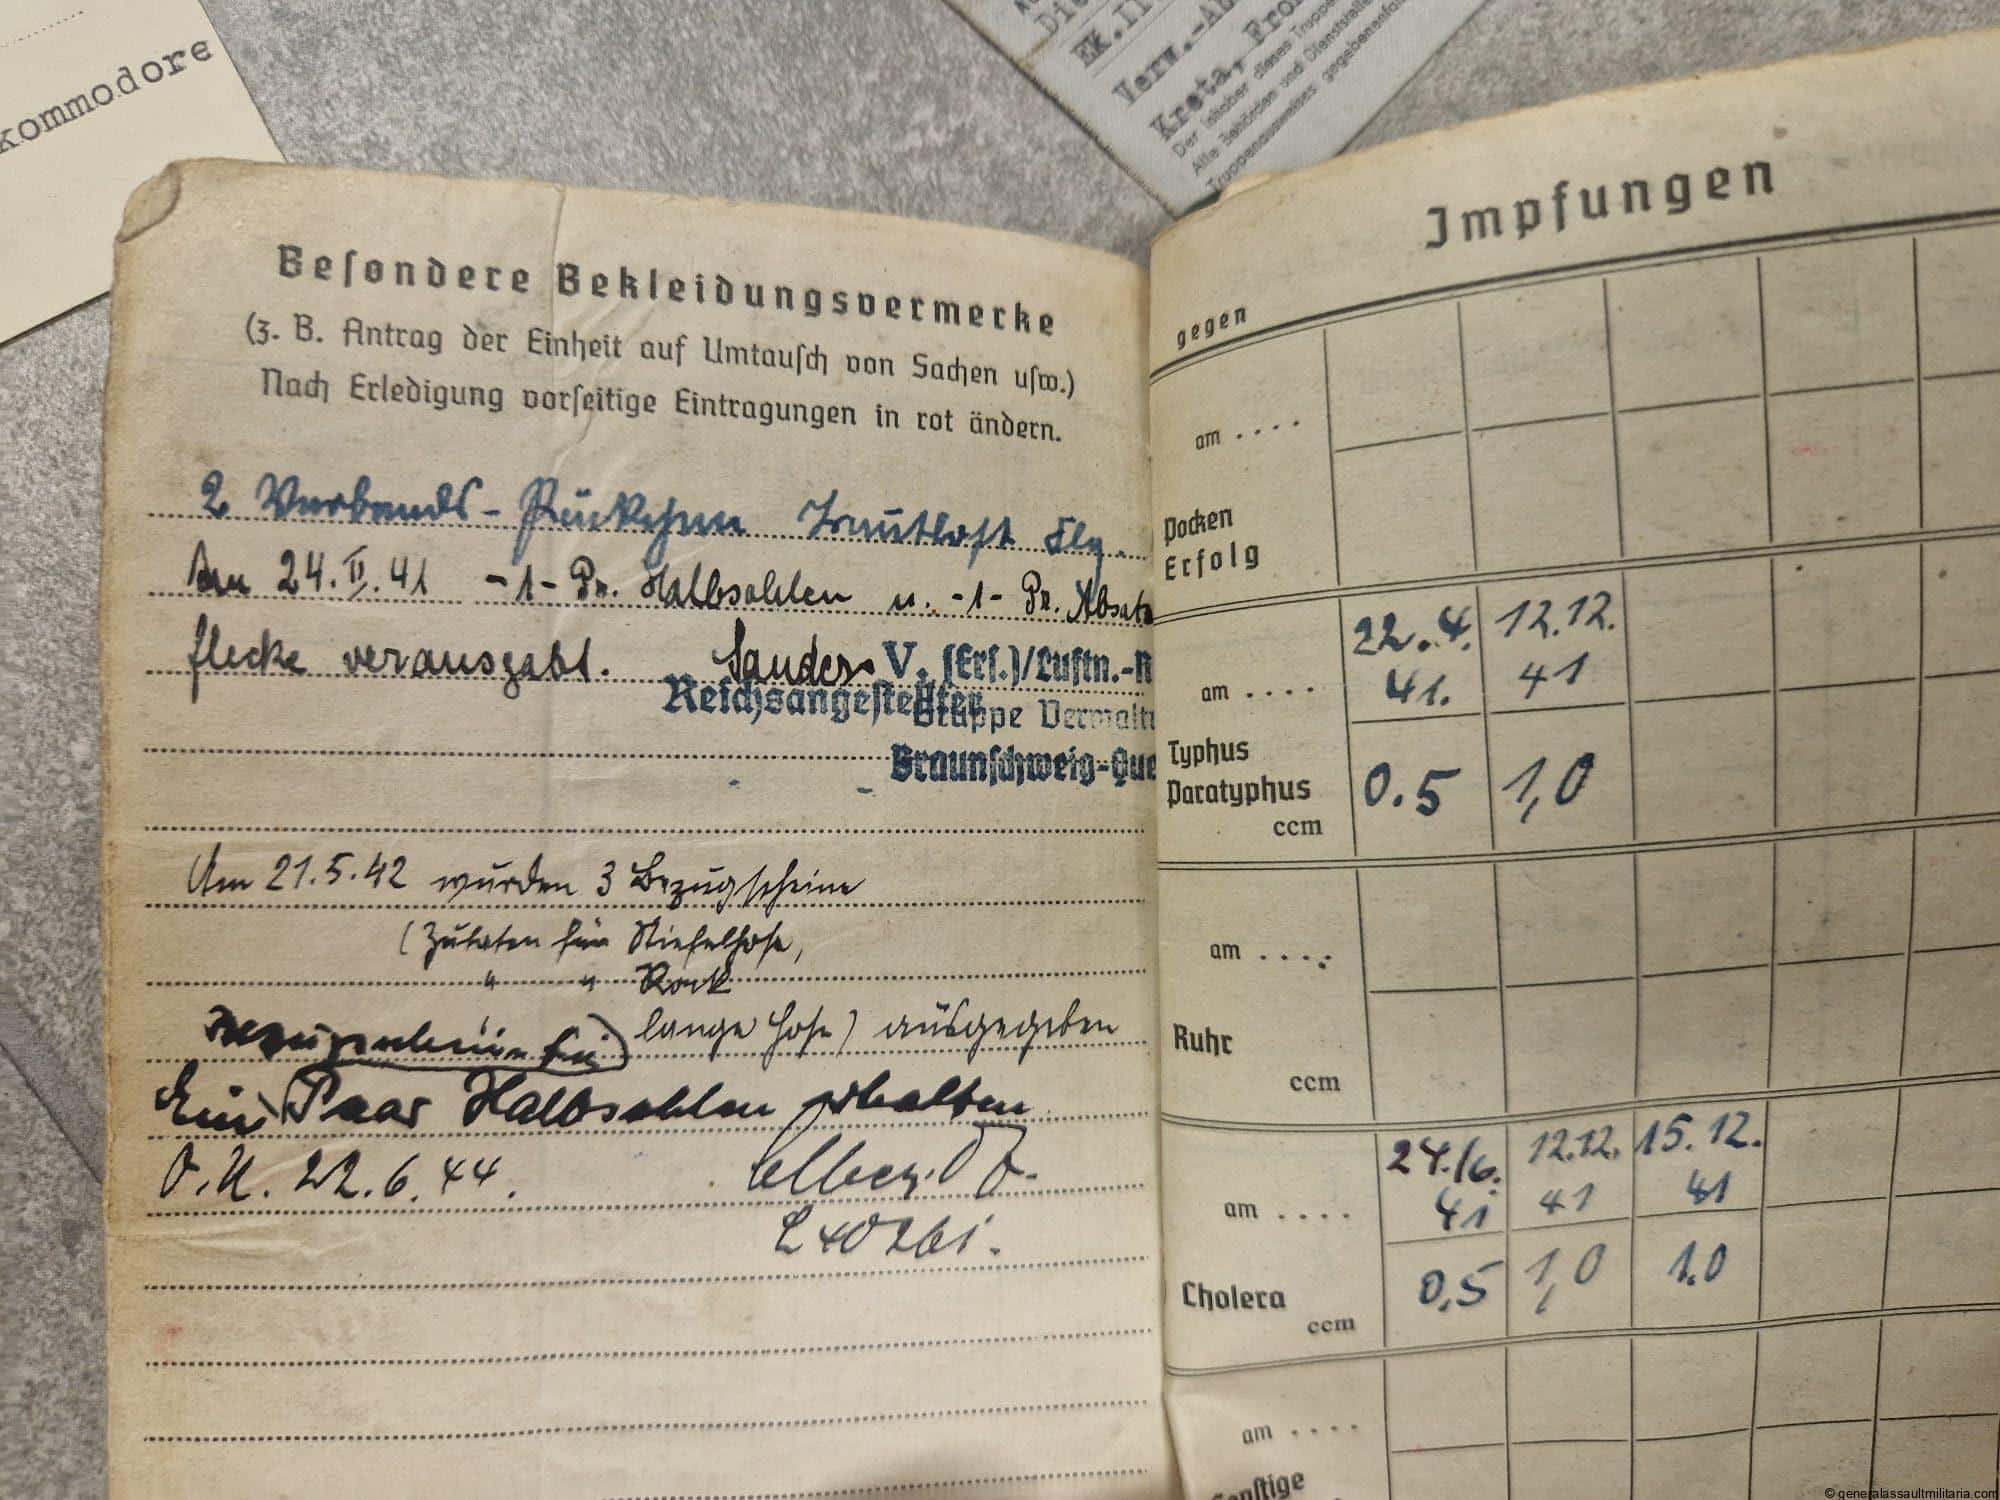 kommodore
EK.II
Verw.-
Kreta, Fro
Der Inhaber dieses Truppe
Alle Behörden und Dienststelle
Truppenausweises gegebenenfal
Beſondere Bekleidungsvermerke
(z. B. Antrag der Einheit auf Umtauſch von Sachen uſw.)
Nach Erledigung vorſeitige Eintragungen in rot ändern.
2 Verbands-Päckchen
Am 24. II. 41 -1- Pr. Halbsohlen u. -1- Pr. Absatz
flecke verausgabt. Sander V. (Erſ.)/Luftn.-R
Reichsangeſtellter
Gruppe Verwalt
Braunſchweig-Que
Am 21.5.42 wurden 3 Bezugscheine
(Zutaten für Stiefelhose,
" " Rock
lange Hose) ausgegeben
Ein Paar Halbsohlen erhalten
O.U. 22.6.44.
Impfungen
gegen
am ....
Pocken
Erfolg
22.4. 12.12.
am .... 41. 41
Typhus
Paratyphus 0.5 1,0
ccm
am ....
Ruhr
ccm
24./6. 12.12. 15.12.
am .... 41 41 41
Cholera 0,5 1,0 1.0
ccm
am ....
Sonſtige
© generalassaultmilitaria.com